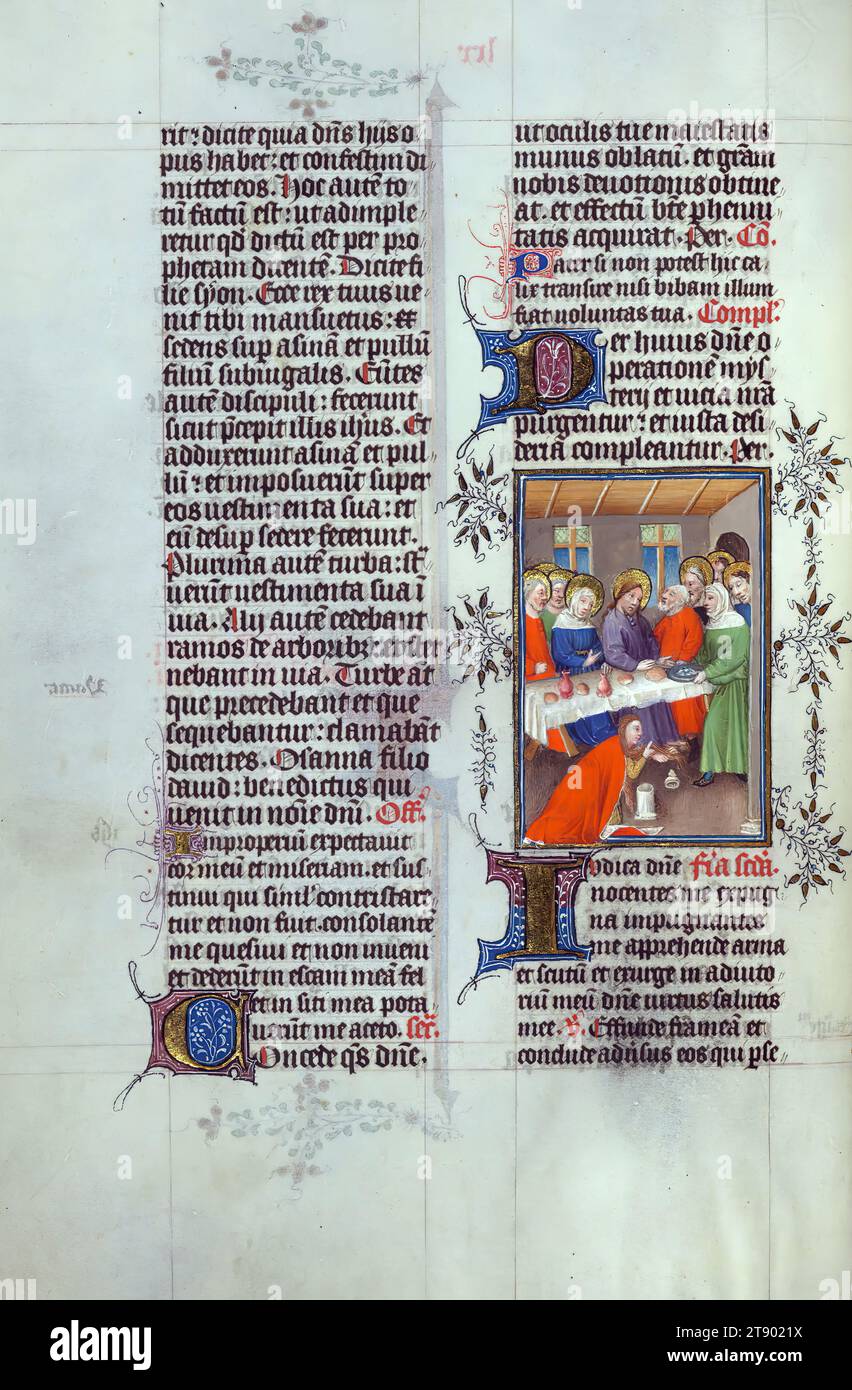 rit: dicite quia dns hiis o
pus habet: et confestim di
mittet eos. Hoc autē to
tū factū est: ut adimple
retur qd dictū est per pro
phetam dicentē. Dicite fi
lie syon. Ecce rex tuus ue
nit tibi mansuetus: et
sedens sup asinā et pullū
filiū subiugalis. Eūtes
autē discipuli: fecerunt
sicut p̄cepit illis ihus. Et
adduxerunt asinā et pul
lū: et imposuerūt super
eos uestimenta sua: et
eū desup sedere fecerunt.
Plurima autē turba: st̄
uerūt uestimenta sua ī
uia. Alij autē cedebant
ramos de arboribz: et ster
nebant in uia. Turbe at
que precedebant et que
sequebantur: clamabāt
dicentes. Osanna filio
dauid: benedictus qui
uenit in noīe dnī. Off.
Improperiū expectauit
cor meū et miseriam. et sus
tinui qui simł contristare
tur et non fuit. consolantē
me quesiui et non inueni
et dederūt in escam meā fel
et in siti mea pota
uerūt me aceto. Scr.
Concede qs dne.
lxx
ut oculis tue maiestatis
munus oblatū. et grām
nobis deuotionis obtine
at. et effectū bte phenni
tatis acquirat. Per. Cō.
Pater si non potest hic ca
lix transire nisi bibam illum
fiat uoluntas tua. Compł.
Per huius dne o
perationē mys
terij et uicia nrā
purgentur: et iusta desi
deria compleantur. Per.
Iudica dne Fīa scda.
nocentes me expug
na impugnantes
me apprehende arma
et scutū et exurge in adiuto
riū meū dne uirtus salutis
mee. V. Effunde frameā et
conclude aduīsus eos qui pse
alamy
Image ID: 2T9021X
www.alamy.com